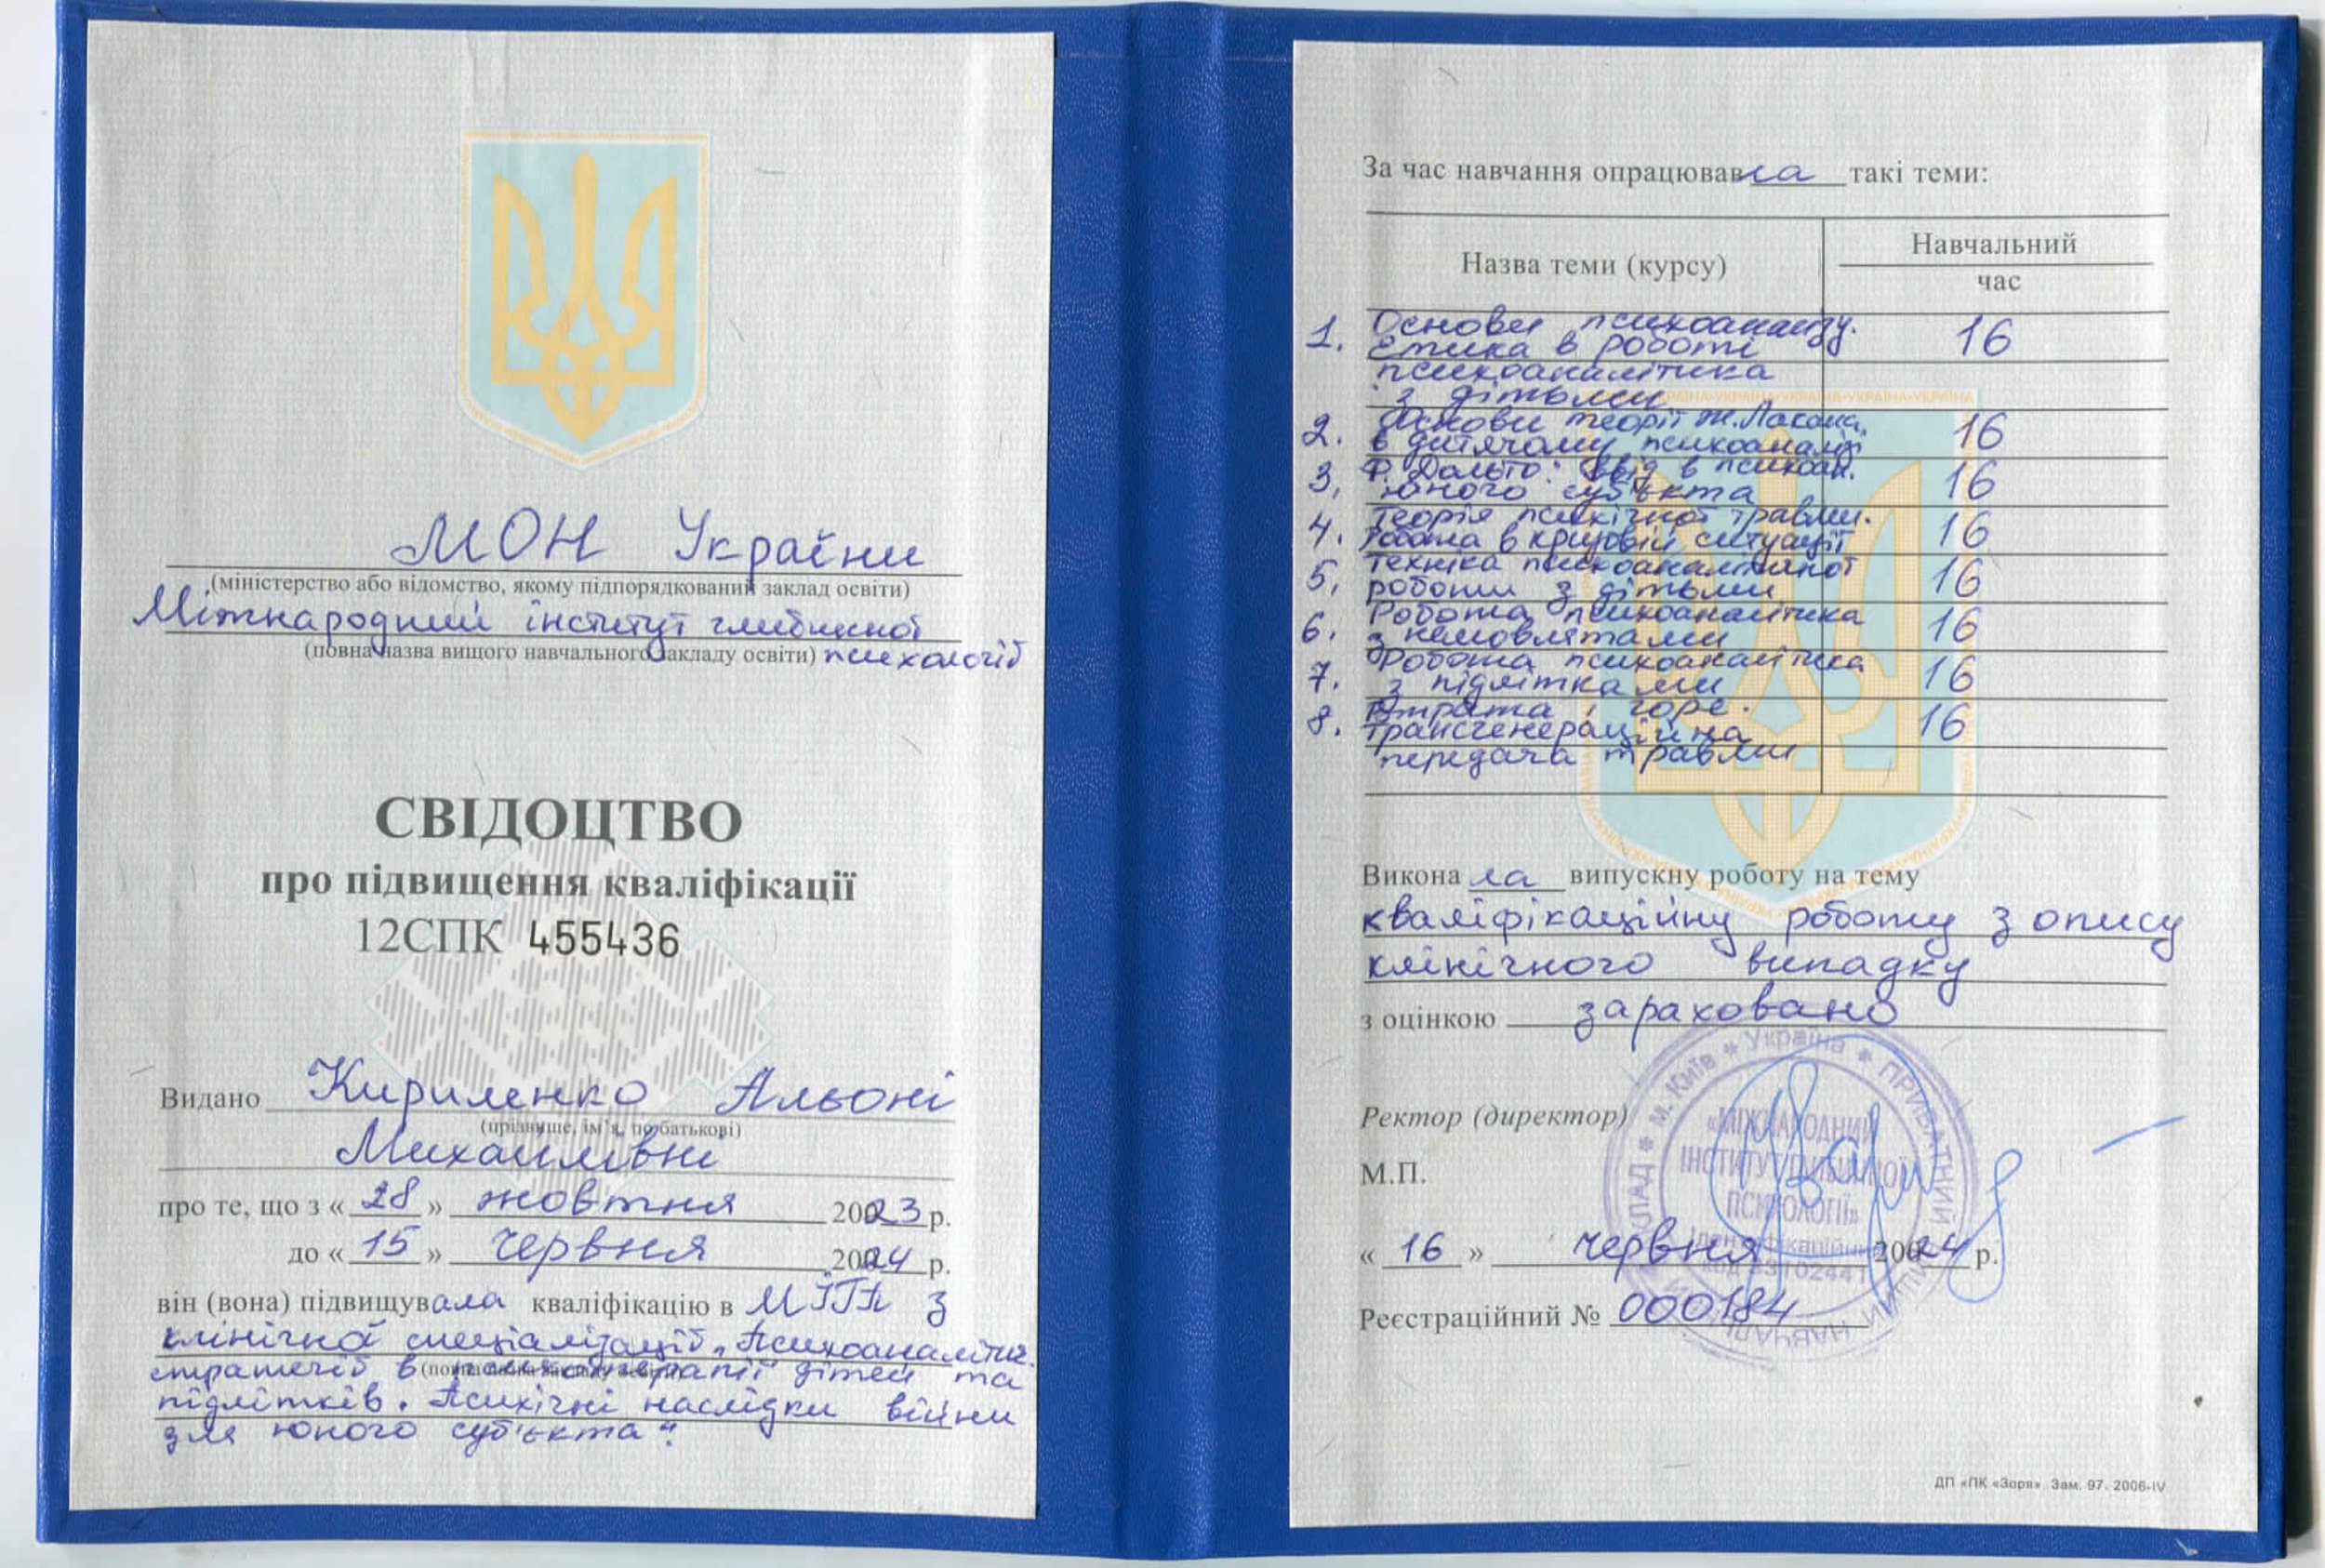 МОН України
(міністерство або відомство, якому підпорядкований заклад освіти)
Міжнародний інститут глибинної
(повна назва вищого навчального закладу освіти) психології
СВІДОЦТВО
про підвищення кваліфікації
12СПК 455436
Видано Кириленко Альоні
(прізвище, ім'я, по батькові)
Михайлівні
про те, що з « 28 » жовтня 2023 р.
до « 15 » червня 2024 р.
він (вона) підвищувала кваліфікацію в МІГП з
клінічної спеціалізації „Психоаналітич.
стратегії в психотерапії дітей та
підлітків. Психічні наслідки війни
для юного суб'єкта"
За час навчання опрацювавла такі теми:
Назва теми (курсу)
Навчальний
час
1. Основи психоаналізу. 16
Етика в роботі
психоаналітика
з дітьми
2. Основи теорії Ж. Лакана 16
в дитячому психоаналізі
3. Ф. Дольто: ввід в психоан. 16
юного суб'єкта
4. Теорія психічної травми. 16
Робота в кризовій ситуації
5. Техніка психоаналітичної 16
роботи з дітьми
6. Робота психоаналітика 16
з немовлятами
7. Робота психоаналітика 16
з підлітками
8. Втрата і горе. 16
Трансгенераційна
передача травми
Виконала випускну роботу на тему
кваліфікаційну роботу з опису
клінічного випадку
з оцінкою зараховано
Ректор (директор)
М.П.
« 16 » червня 2024 р.
Реєстраційний № 000184
м. Київ * Україна * ПРИВАТНИЙ
«МІЖНАРОДНИЙ
ІНСТИТУТ ГЛИБИННОЇ
ПСИХОЛОГІЇ»
ДП «ПК «Зоря». Зам. 97. 2006-IV